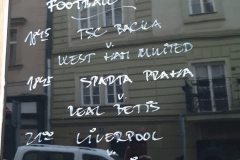 FOOTBALL
1845 TSC BACKA
V
WEST HAM UNITED
1845 SPARTA PRAHA
V
REAL BETIS
2100 LIVERPOOL